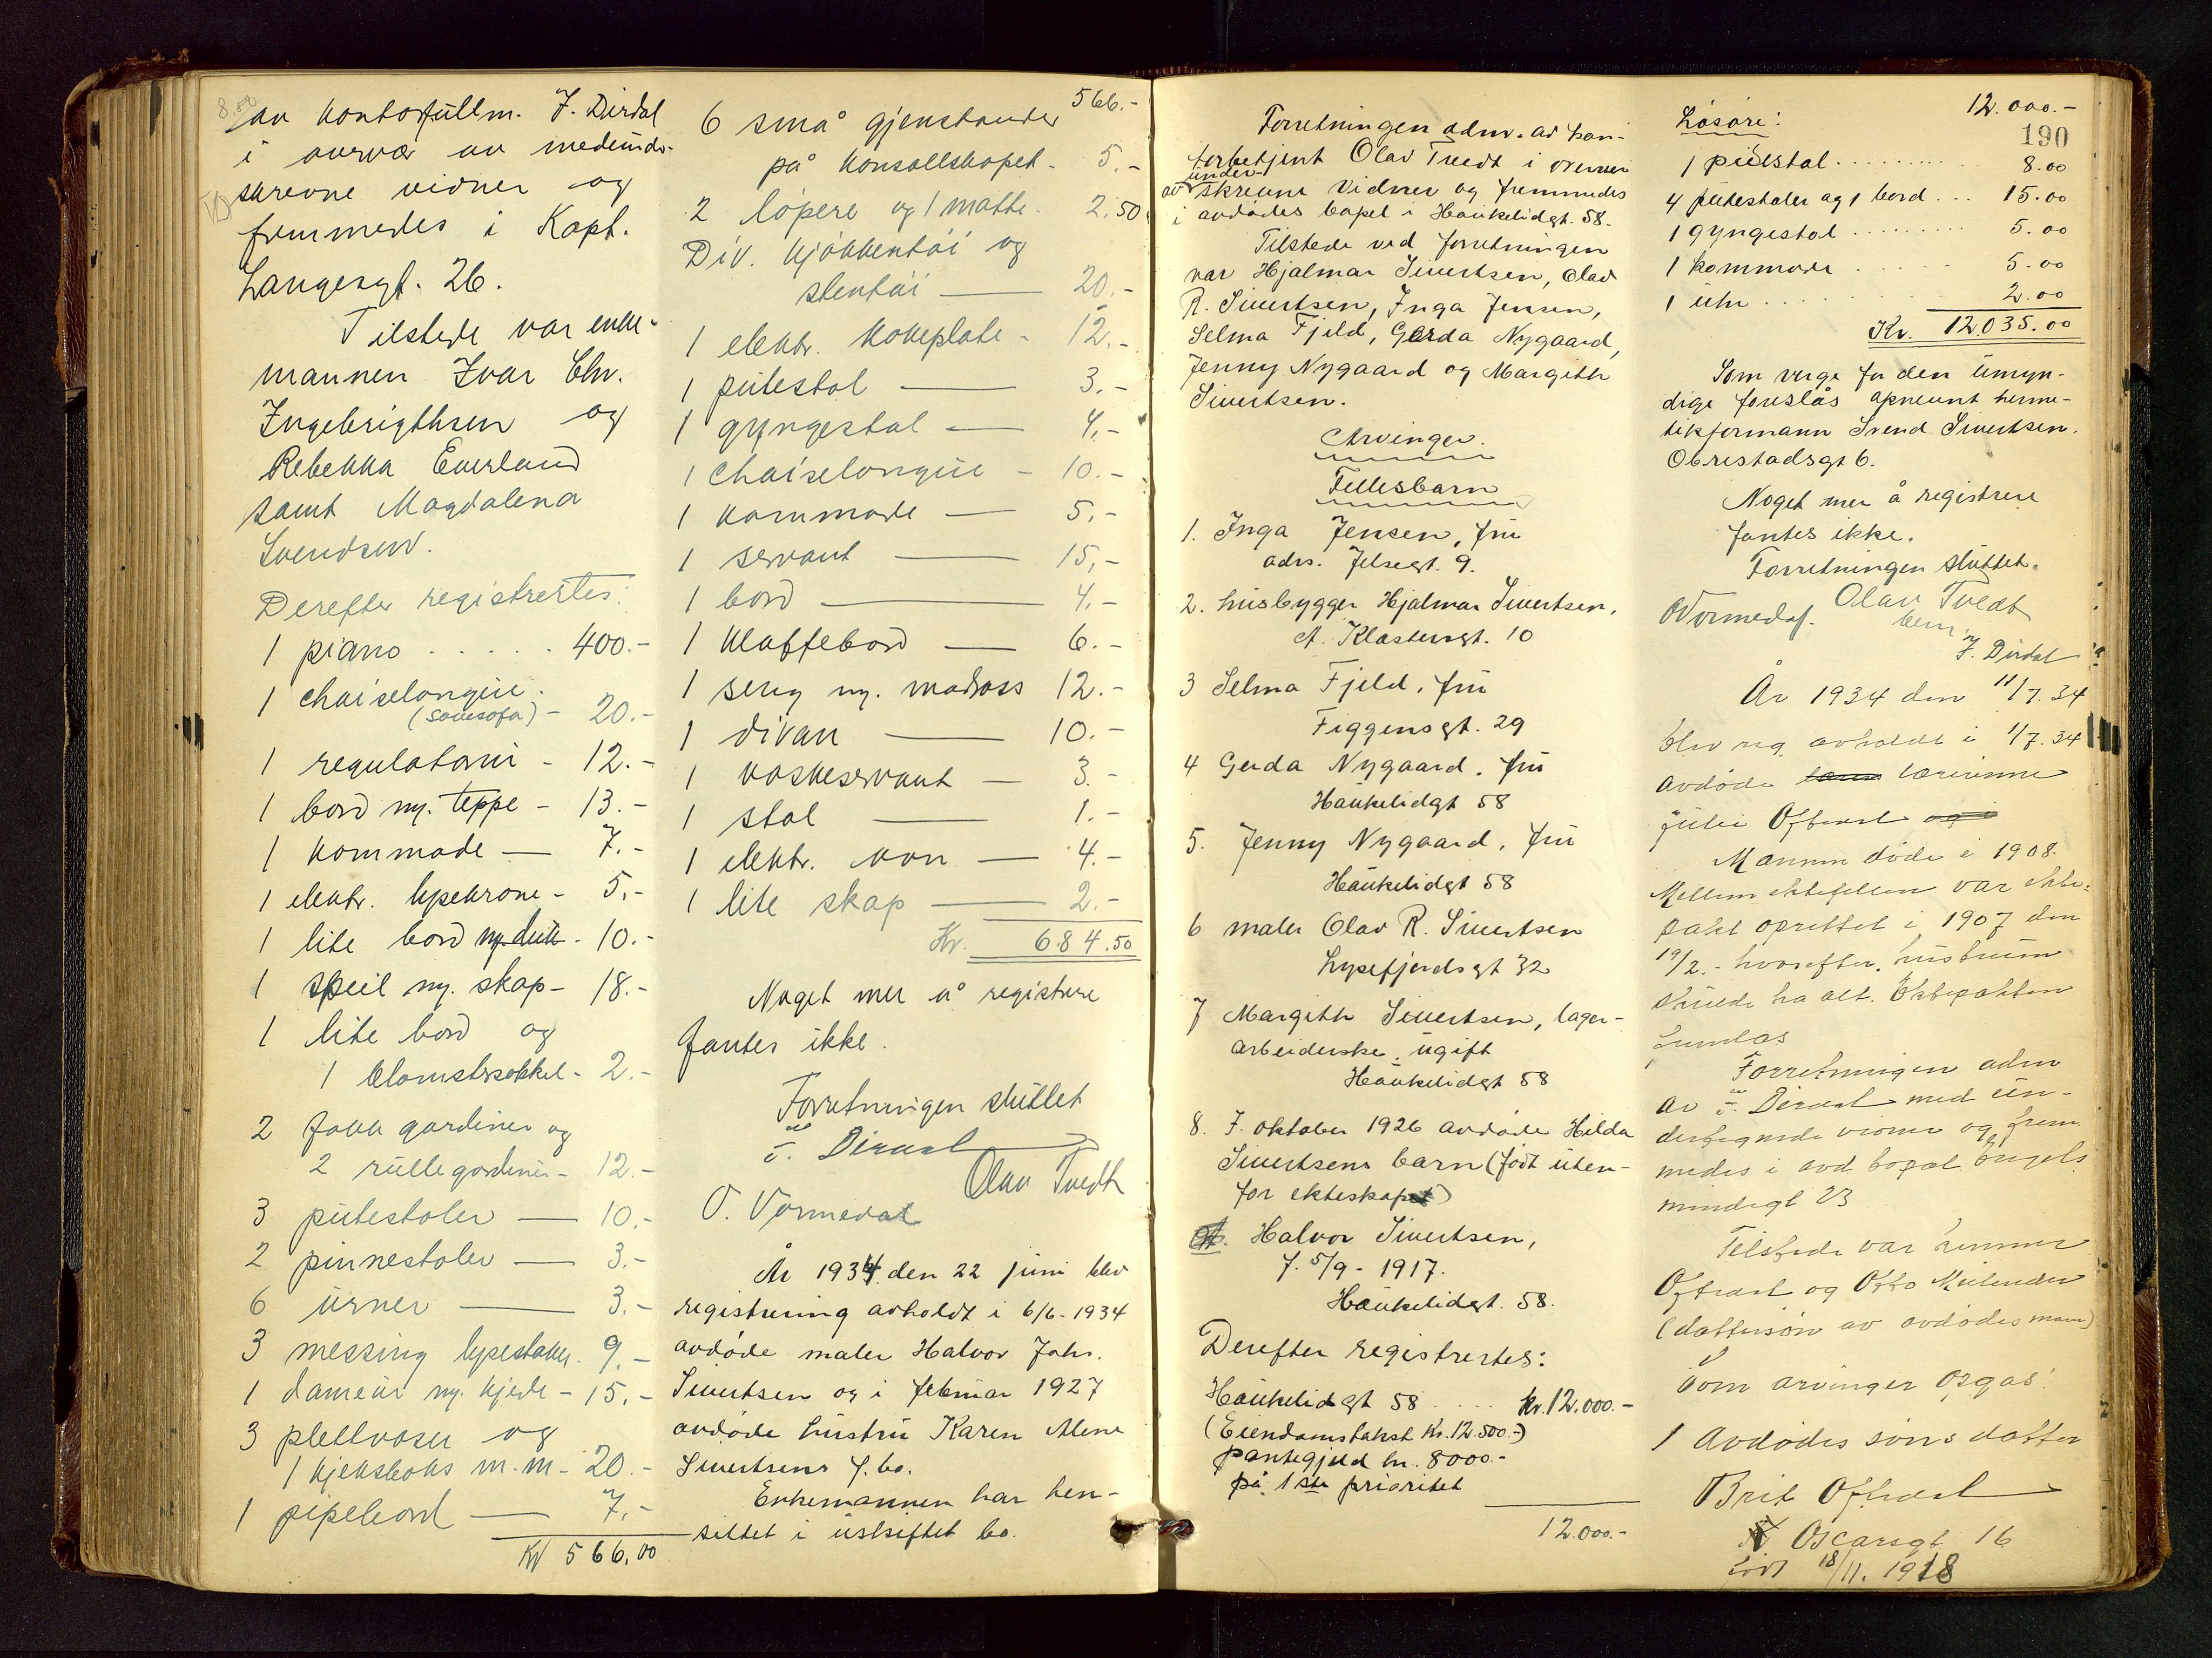 av kontorfullm. J. Dirdal
i overvær av medunder-
skrevne vidner og
fremmedes i Kapt.
Langesgt. 26.
Tilstede var enke-
mannen Ivar Chr.
Ingebrigthsen og
Rebekka Everland
samt Magdalena
Svendsen.
Derefter registrertes:
1 piano ..... 400.-
1 chaiselongue.
(sovesofa) - 20.-
1 regulatorur - 12.-
1 bord m. teppe - 13.-
1 kommode — 7.-
1 elektr. lysekrone - 5.-
1 lite bord m. duk - 10.-
1 speil m. skap - 18.-
1 lite bord og
1 blomstersokkel - 2.-
2 fakk gardiner og
2 rullegardiner - 12.-
3 putestoler — 10.-
2 pinnestoler — 3.-
6 urner — 3.-
3 messing lysestaker. 9.-
1 dameur m. kjede - 15.-
3 plettvaser og
1 kjeksboks m.m. - 20.-
1 pipebord — 7.-
Kr 566,00
566.-
6 små gjenstander
på konsollskapet - 5.-
2 løpere og 1 matte. 2.50
Div. kjøkkentøi og
stentøi — 20.-
1 elektr. kokeplate - 12.-
1 putestol — 3.-
1 gyngestol — 4.-
1 chaiselongue - 10.-
1 kommode — 5.-
1 servant — 15,-
1 bord — 4.-
1 klaffebord — 6.-
1 seng m. madrass 12.-
1 divan — 10.-
1 vaskeservant — 3.-
1 stol — 1.-
1 elektr. ovn — 4.-
1 lite skap — 2.-
Kr. 684.50
Noget mer å registrere
fantes ikke.
Forretningen sluttet
J. Dirdal
Olav Tvedt
O. Vormedal
År 1934 den 22 juni blev
registrering avholdt i 6/6-1934
avdøde maler Halvor Johs.
Sivertsen og i februar 1927
avdøde hustru Karen Alene
Sivertsens f.bo.
Enkemannen har hen-
sittet i uskiftet bo.
Forretningen adm. av kon-
torbetjent Olav Tvedt i overvær
under-
av skrevne vidner og fremmedes
i avdødes bopel i Haukelidgt. 58.
Tilstede ved forretningen
var Hjalmar Sivertsen, Olav
R. Sivertsen, Inga Jensen,
Selma Fjeld, Gerda Nygaard,
Jenny Nygaard og Margith
Sivertsen.
Arvinger.
Fellesbarn
1. Inga Jensen, fru
adr. Jelsegt. 9.
2. husbygger Hjalmar Sivertsen,
A. Klostersgt. 10
3 Selma Fjeld, fru
Figgensgt. 29
4 Gerda Nygaard, fru
Haukelidgt 58
5. Jenny Nygaard, fru
Haukelidgt 58
6 maler Olav R. Sivertsen
Lysefjordsgt 32
7 Margith Sivertsen, lager-
arbeiderske, ugift
Haukelidgt 58
8. I oktober 1926 avdøde Hilda
Sivertsens barn (født uten-
for ekteskapet)
Halvor Sivertsen,
f. 5/9 - 1917.
Haukelidgt. 58.
Derefter registrertes:
Haukelidgt 58 .... kr. 12.000.-
(Eiendomstakst kr. 12.500.-)
pantegjeld kr. 8000.-
på 1ste prioritet
12.000.-
12.000.-
190
Løsøre:
1 pustol .......... 8.00
4 putestoler og 1 bord ... 15.00
1 gyngestol ......... 5.00
1 kommode ...... 5.00
1 uhr ......... 2.00
Kr. 12.035.00
Som verge for den umyn-
dige foreslås opnevnt herme-
tikkformann Svend Sivertsen.
Obrestadsgt 6.
Noget mer å registrere
fantes ikke.
Forretningen sluttet.
O Vormedal. Olav Tvedt
bem.
J. Dirdal
År 1934 den 11/7.34
blev reg. avholdt i 1/7.34
avdøde lærerinne
Julie Oftedal og i
Mannen døde i 1908.
Mellem ektefellene var ekte-
pakt oprettet i 1907 den
19/2. - hvorefter hustruen
skulde ha alt. Ektepakten
Forretningen adm
av J. Dirdal med un-
dertegnede vidner og frem
medes i avd bopel Engels
mindegt 23
Tilstede var
Oftedal og Otto
(dattersøn av avdødes mann)
Som arvinger opgas:
1 Avdødes søns datter
Brit Oftedal
Oscarsgt 16
født 18/11. 1918